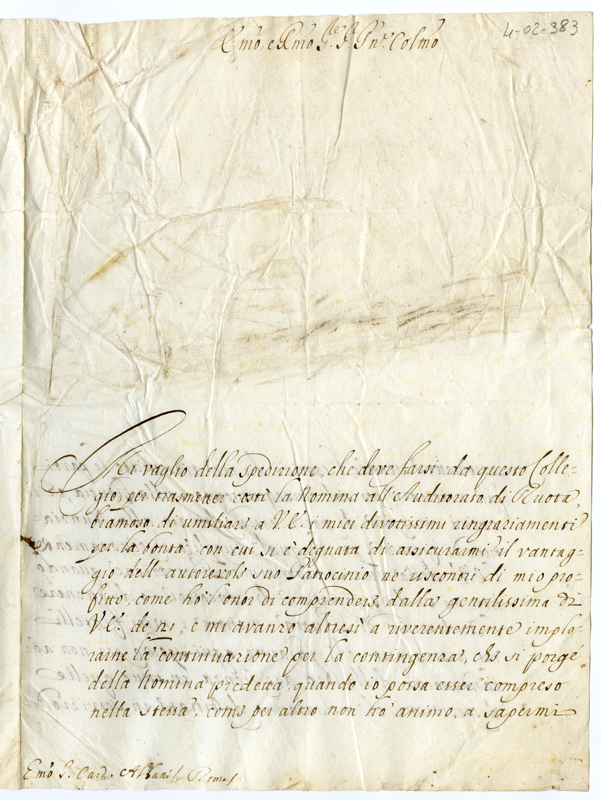 4-02-383
Emo. e Rmo. Sre. Pne. Colmo
Mi vaglio della spedizione, che deve farsi da questo Colle-
gio, per trasmetter costì la Nomina all'Auditorato di Ruota,
bramoso di umiliare a V.E. i miei divotissimi ringraziamenti
per la bontà, con cui si è degnata di assicurarmi il vantag-
gio dell'autorevole suo Patrocinio ne' riscontri di mio pro-
fitto, come hò l'onor di comprendere dalla gentilissima di
V.E. de 21, e mi avanzo altresì a riverentemente implo-
rarne la continuazione per la contingenza, che si porge
della Nomina predetta, quando io possa esser compreso
nella stessa, come per altro non hò animo, a sapermi
Emo. S. Card. Albani Roma